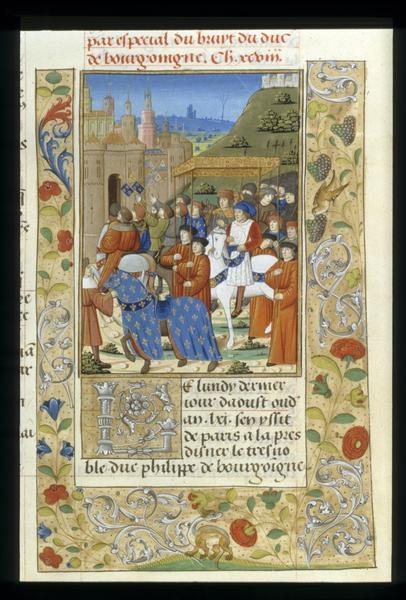 par especial du bruyt du duc
de bourgoingne. Ch. xcviii.
Le lundy dernier
iour daoust oud
an .lxi. sen yssit
de paris a la pres
disner le tresno
ble duc philippe de bourgoigne